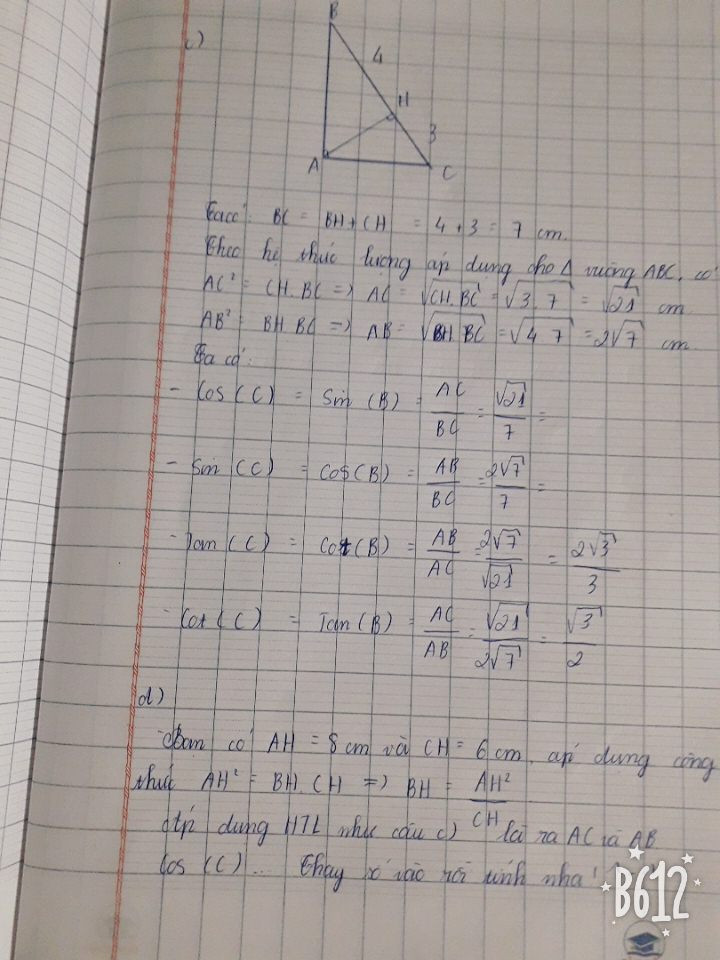 c)
B
4
H
3
A
C
Ta có: BC = BH + CH = 4 + 3 = 7 cm.
Theo hệ thức lượng áp dụng cho Δ vuông ABC, có
AC² = CH.BC => AC = √CH.BC = √3.7 = √21 cm
AB² = BH.BC => AB = √BH.BC = √4.7 = 2√7 cm
Ta có:
- Cos(C) = Sin(B) = AC/BC = √21/7 =
- Sin(C) = Cos(B) = AB/BC = 2√7/7 =
- Tan(C) = Cot(B) = AB/AC = 2√7/√21 = 2√3/3
- Cot(C) = Tan(B) = AC/AB = √21/2√7 = √3/2
d)
có AH = 8 cm và CH = 6 cm, áp dụng công
thức AH² = BH.CH => BH = AH²/CH
Áp dụng HTL như câu c) là ra AC và AB
Cos (C)... Thay số vào rồi tính nha!
B612